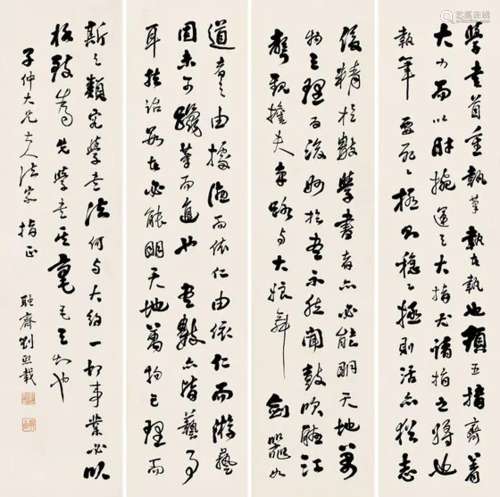 學書首重執筆執在執也須五指齊着
大力而以肘腕運之大指尤諸指之將也
執筆要死之極不穩之極則活亦猶志
道意由據德而依仁由依仁而游藝
固未可躐等而進也書數亦皆藝事
耳數者必能明天地萬物之理而
後精於數學書者亦必能明天地萬
物之理而後妙於書永聞鼓吹聽江
聲觀擔夫爭路與大娘舞劍器如
斯之類究學書法何與大約一切事業必以
極致為先學書其毫毛之也
子仲大兄大人法家指正
融齋劉熙載